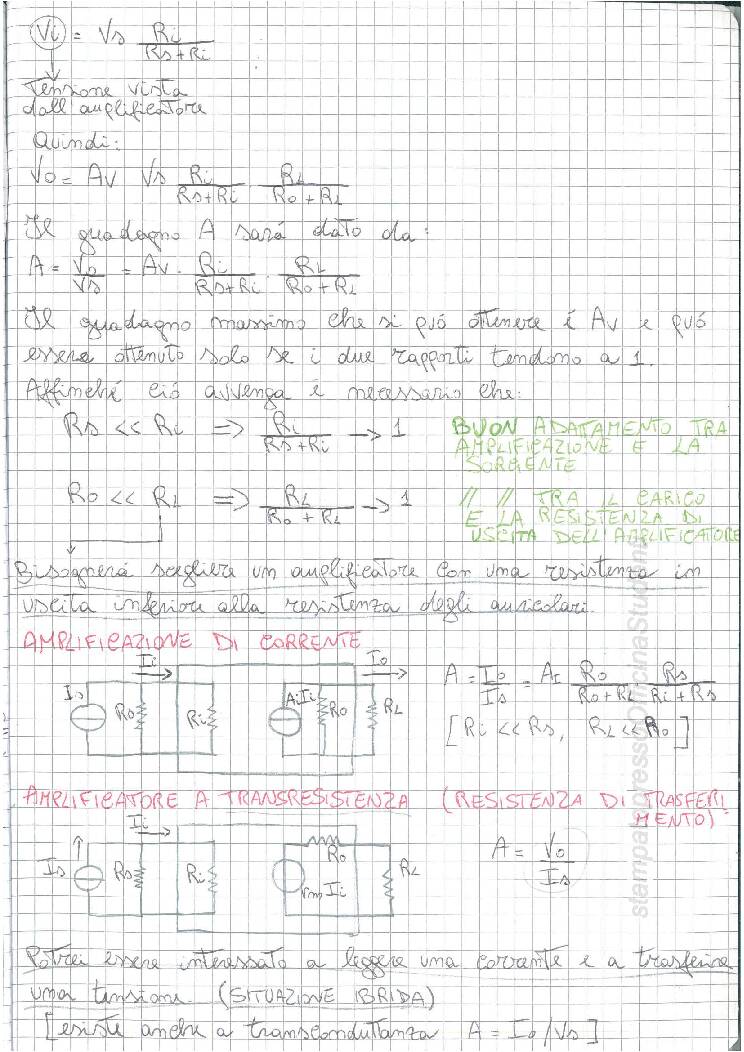 Vi = Vs Ri / (Rs+Ri)
Tensione vista
dall'amplificatore
Quindi:
Vo = Av Vs Ri / (Rs+Ri) · RL / (Ro+RL)
Il guadagno A sará dato da:
A = Vo / Vs = Av · Ri / (Rs+Ri) · RL / (Ro+RL)
Il guadagno massimo che si puó ottenere é Av e puó
essere ottenuto solo se i due rapporti tendono a 1.
Affinché ció avvenga é necessario che:
Rs << Ri => Ri / (Rs+Ri) → 1 BUON ADATAMENTO TRA
AMPLIFICAZIONE E LA
SORGENTE
Ro << RL => RL / (Ro+RL) → 1 // // TRA IL CARICO
E LA RESISTENZA DI
USCITA DELL'AMPLIFICATORE
Bisognerá scegliere un amplificatore con una resistenza in
uscita inferiore alla resistenza degli auricolari.
AMPLIFICAZIONE DI CORRENTE
Ii Io
Is Rs Ri AiIi Ro RL
A = Io / Is = AI Ro / (Ro+RL) Rs / (Ri+Rs)
[Ri << Rs, RL << Ro]
AMPLIFICATORE A TRANSRESISTENZA (RESISTENZA DI TRASFERI
MENTO)
Ii
Is Rs Ri Ro rm Ii RL
A = Vo / Is
Potrei essere interessato a leggere una corrente e a trasferire
una tensione (SITUAZIONE IBRIDA)
[esiste anche a transconduttanza A = Io/Vs]
stampato presso OfficinaStudenti